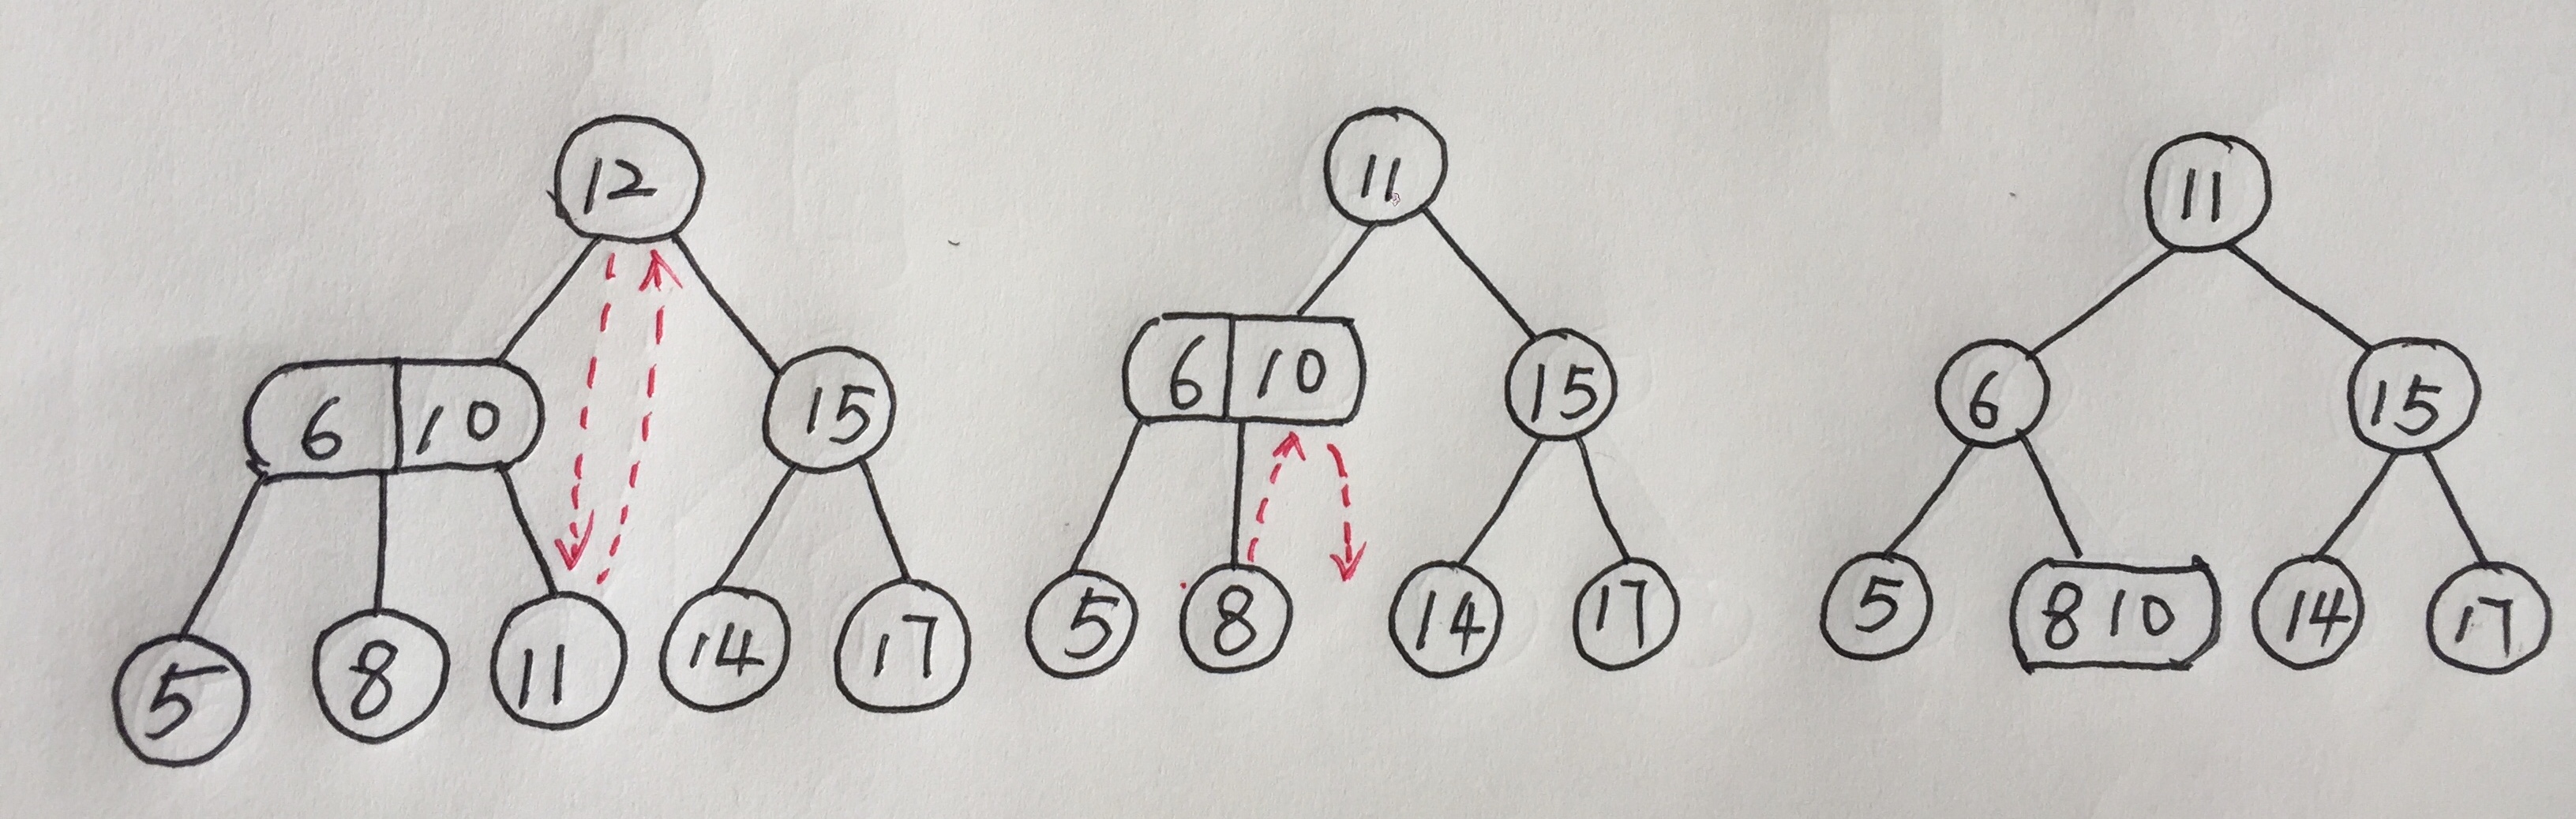 12
6 10
15
5 8 11 14 17
11
6 10
15
5 8 14 17
11
6
15
5 8 10 14 17